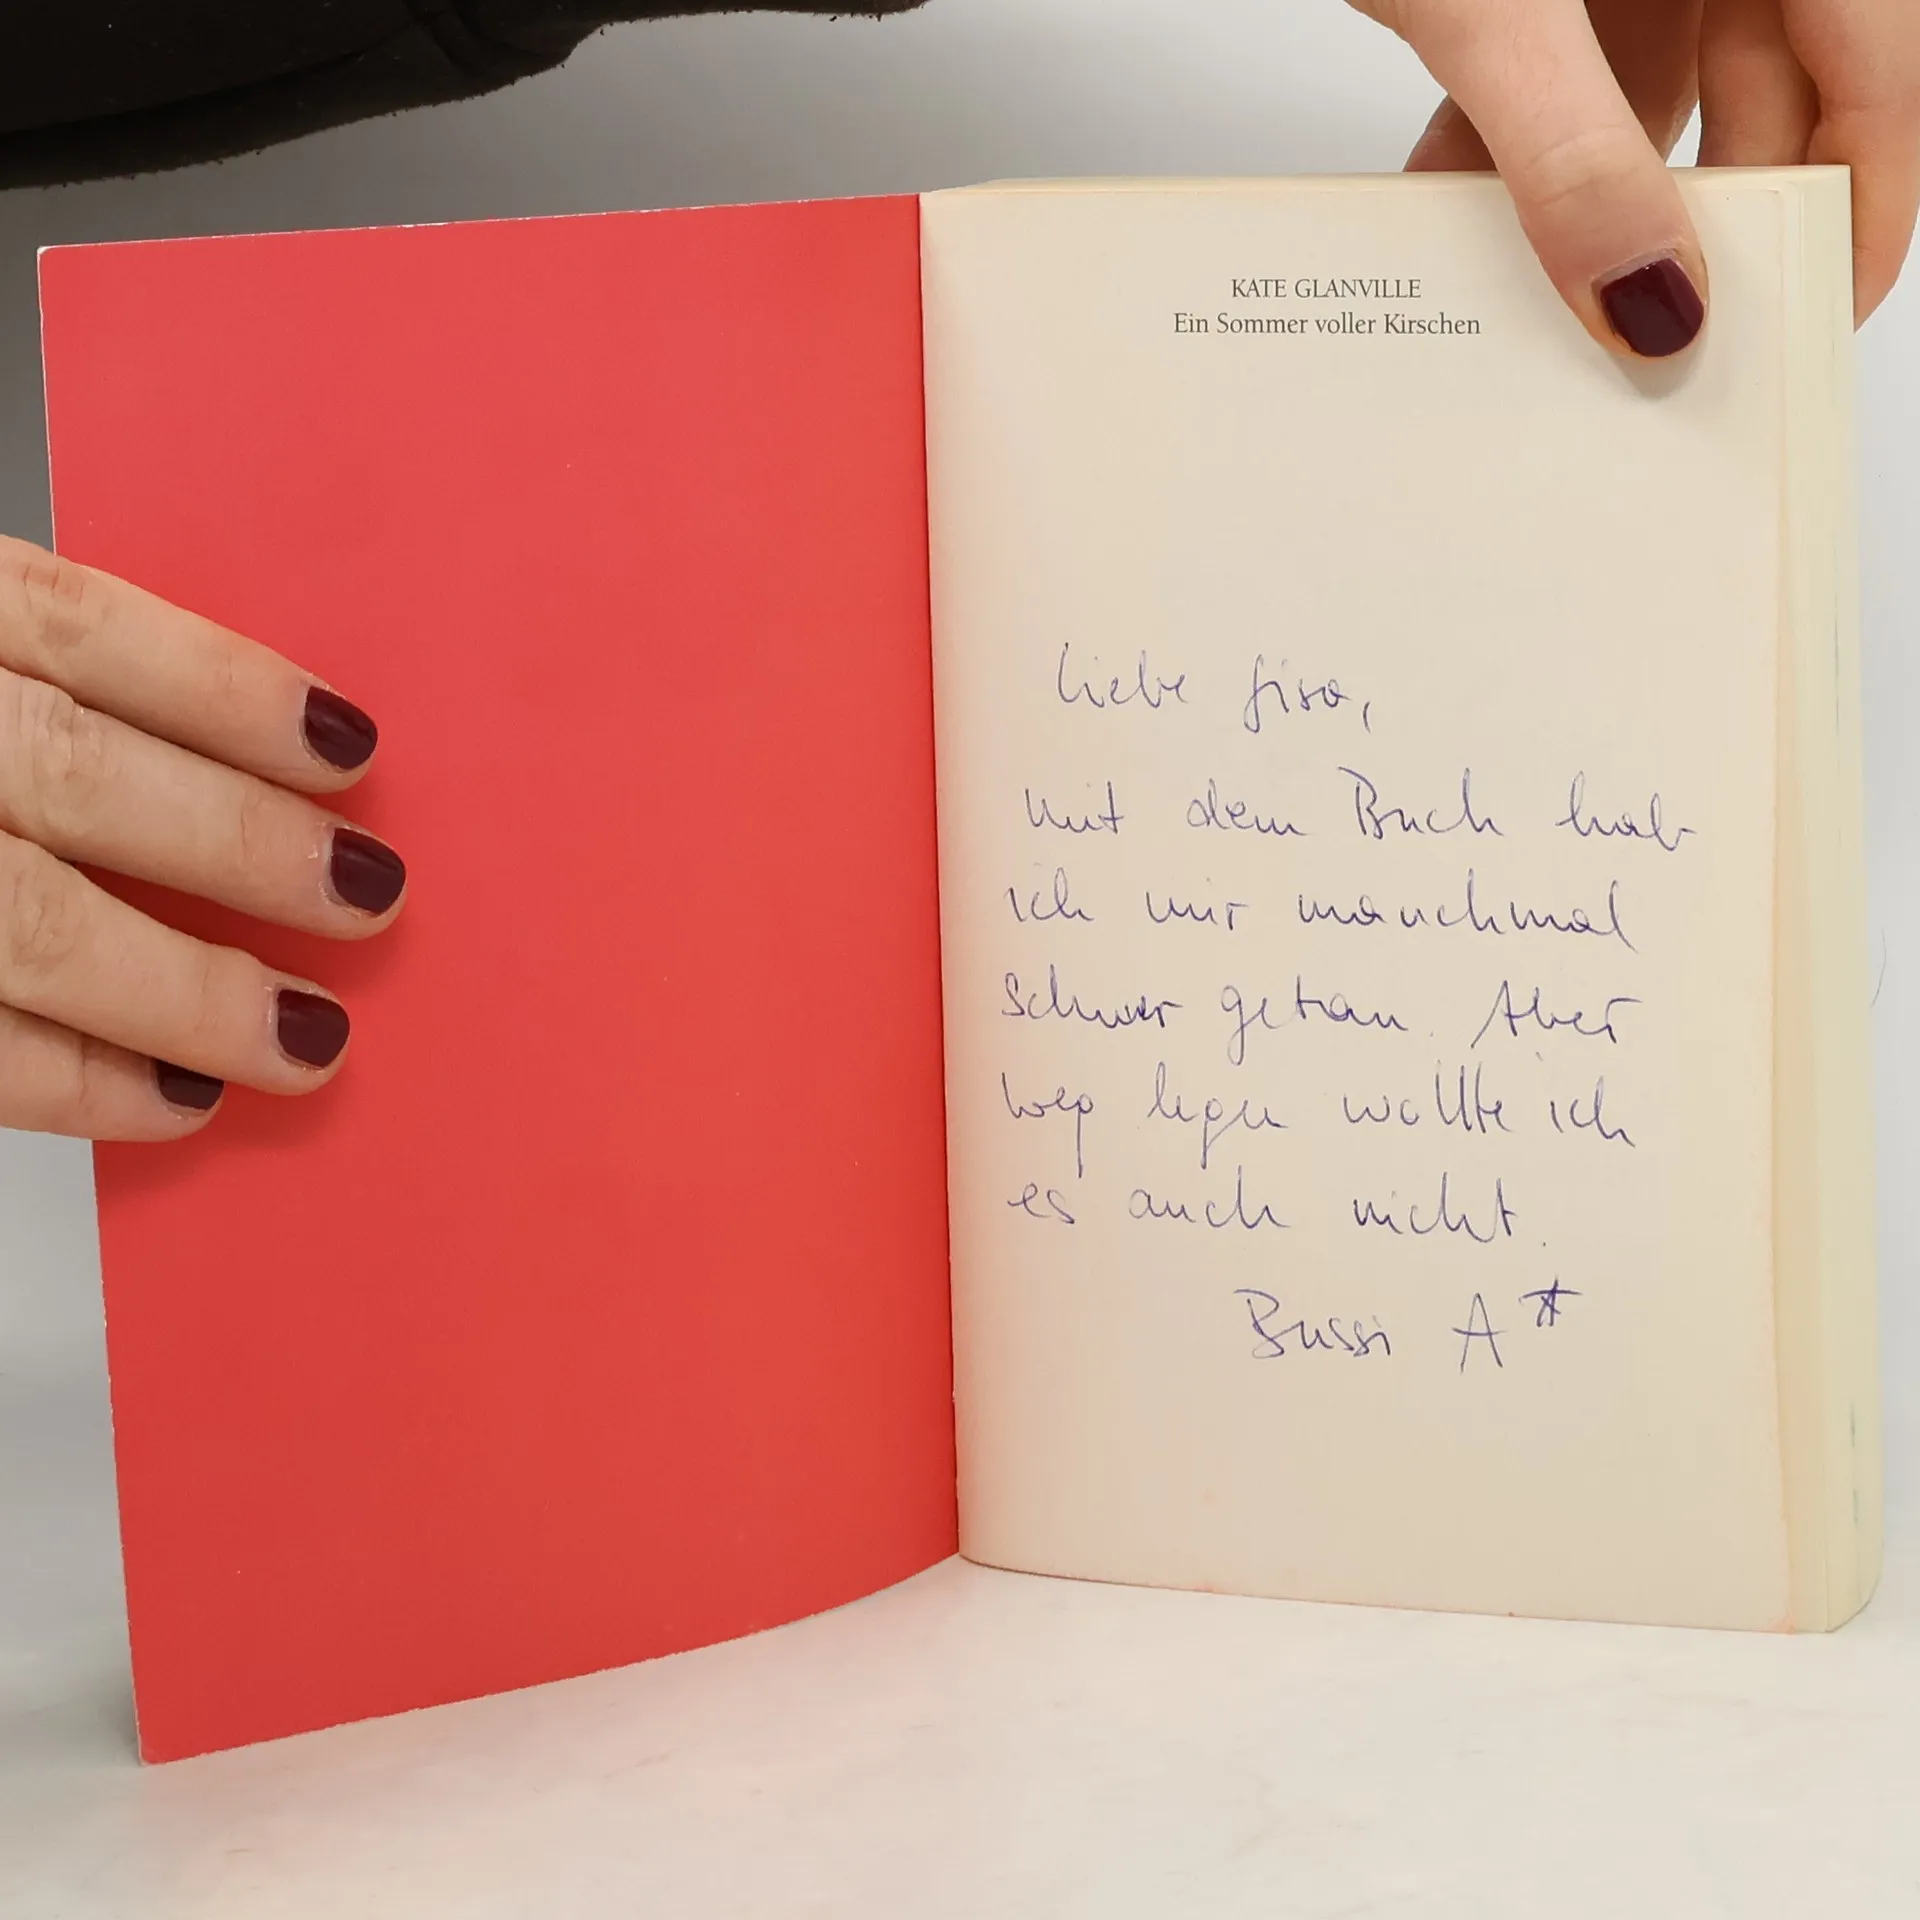 KATE GLANVILLE
Ein Sommer voller Kirschen
liebe Gisa,
mit dem Buch hab
ich mir manchmal
schwer getan. Aber
weg legen wollte ich
es auch nicht.
Bussi A*